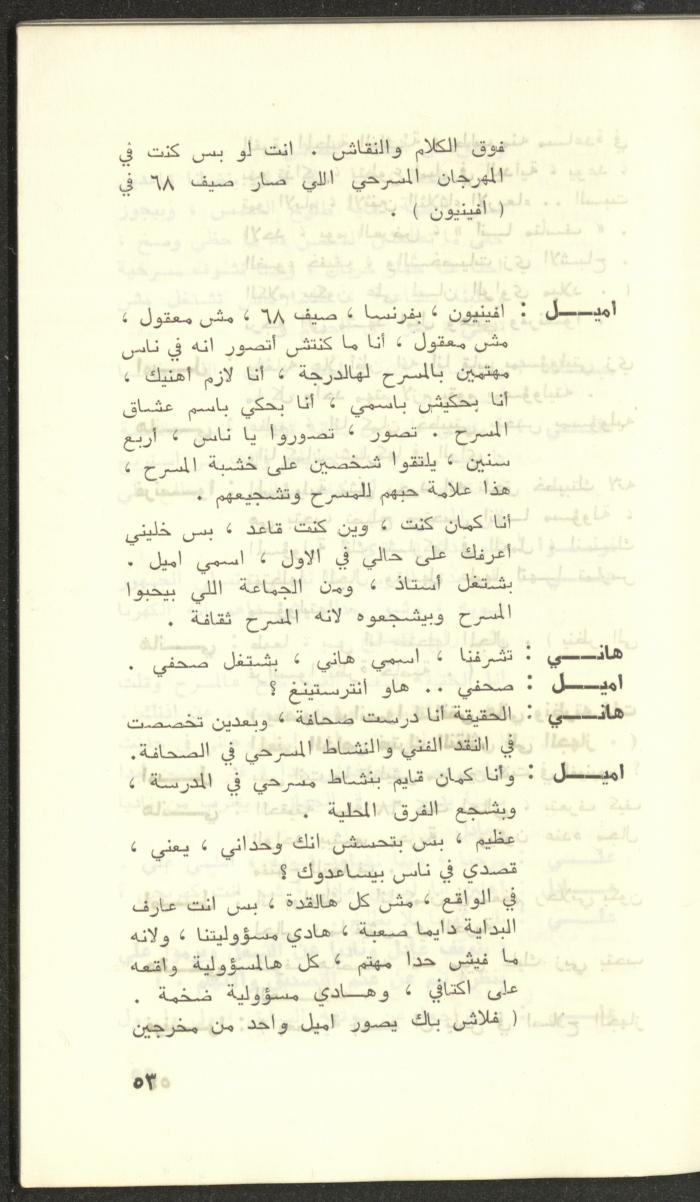 فوق الكلام والنقاش . انت لو بس كنت في
المهرجان المسرحي اللي صار صيف ٦٨ في
( أفينيون ) .
اميـــل : افينيون ، بفرنسا ، صيف ٦٨ ، مش معقول ،
مش معقول ، أنا ما كنتش أتصور انه في ناس
مهتمين بالمسرح لهالدرجة ، أنا لازم أهنيك ،
أنا بحكيش باسمي ، أنا بحكي باسم عشاق
المسرح . تصور ، تصوروا يا ناس ، أربع
سنين ، يلتقوا شخصين على خشبة المسرح ،
هذا علامة حبهم للمسرح وتشجيعهم .
أنا كمان كنت ، وين كنت قاعد ، بس خليني
أعرفك على حالي في الاول ، اسمي اميل .
بشتغل أستاذ ، ومن الجماعة اللي بيحبوا
المسرح وبيشجعوه لانه المسرح ثقافة .
هانـــي : تشرفنا ، اسمي هاني ، بشتغل صحفي .
اميـــل : صحفي .. هاو أنترستينغ ؟
هانـــي : الحقيقة أنا درست صحافة ، وبعدين تخصصت
في النقد الفني والنشاط المسرحي في الصحافة.
اميـــل : وأنا كمان قايم بنشاط مسرحي في المدرسة ،
وبشجع الفرق المحلية .
عظيم ، بس بتحسش انك وحداني ، يعني ،
قصدي في ناس بيساعدوك ؟
في الواقع ، مش كل هالقدة ، بس انت عارف
البداية دايما صعبة ، هادي مسؤوليتنا ، ولانه
ما فيش حدا مهتم ، كل هالمسؤولية واقعه
على اكتافي ، وهـــادي مسؤولية ضخمة .
( فلاش باك يصور اميل واحد من مخرجين
٥٣